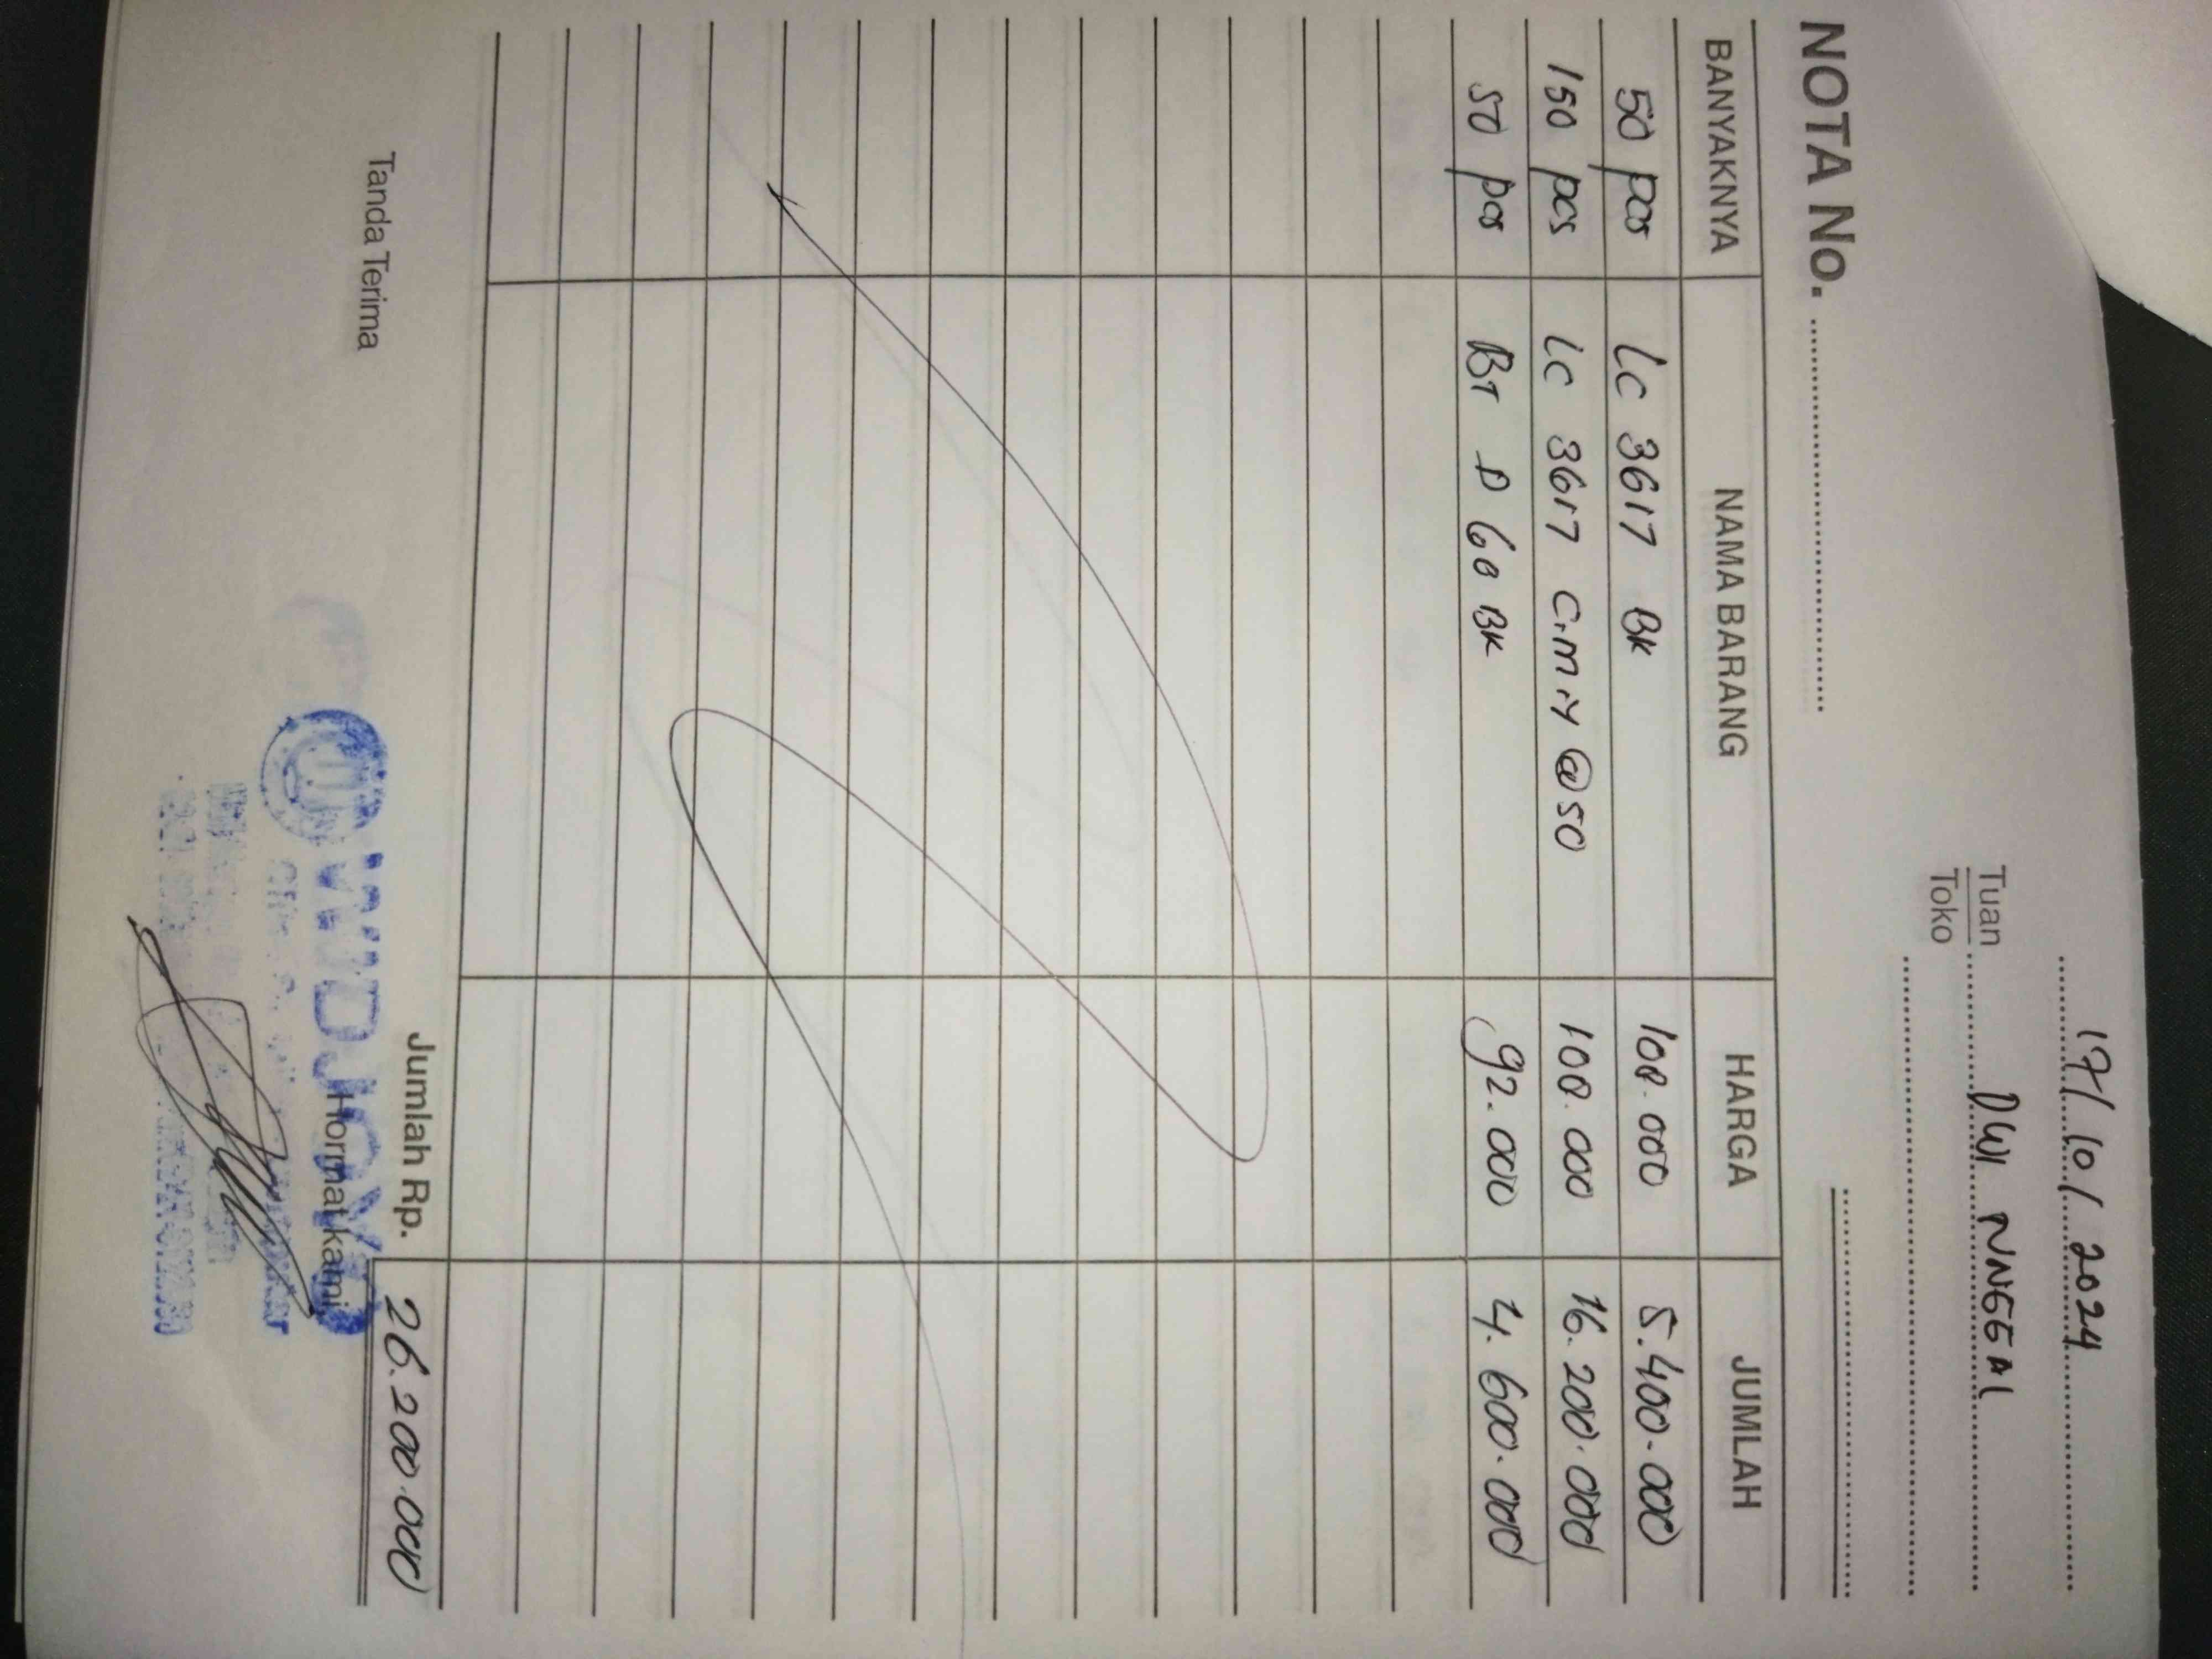 17/10/2024
Tuan DWI NNGGAL
Toko
NOTA No.
BANYAKNYA NAMA BARANG HARGA JUMLAH
50 pcs LC 3617 BK 108.000 5.400.000
150 pcs LC 3617 C.M.Y @50 108.000 16.200.000
50 pcs BT D 60 BK 92.000 4.600.000
Jumlah Rp. 26.200.000
Tanda Terima Hormat kami,
WIDJOYO